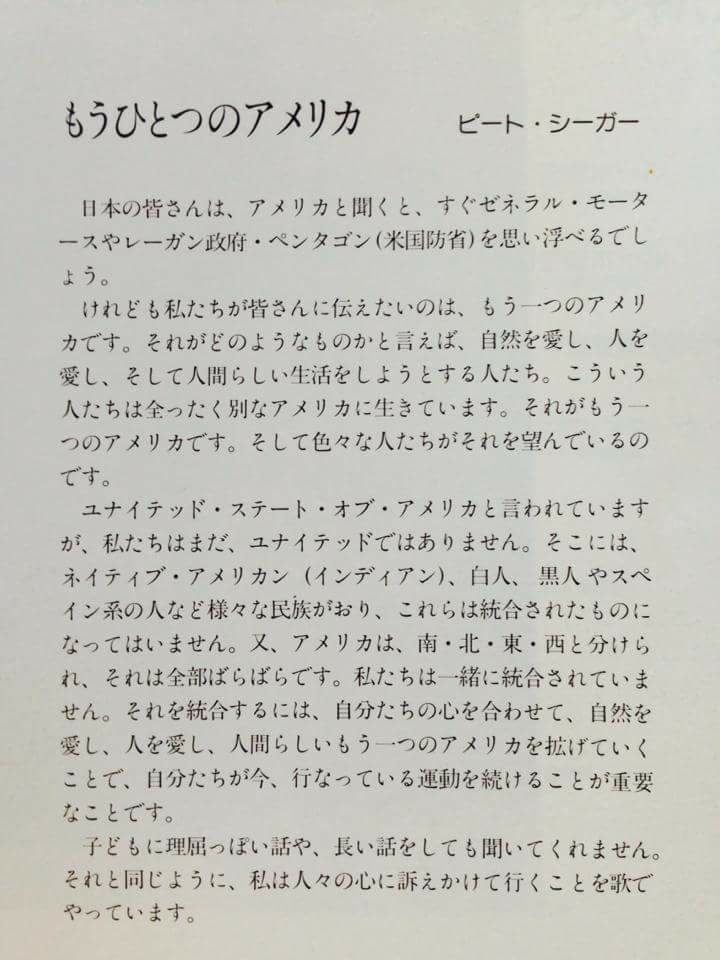 もうひとつのアメリカ　ピート・シーガー
日本の皆さんは、アメリカと聞くと、すぐゼネラル・モータ
ースやレーガン政府・ペンタゴン(米国防省)を思い浮べるでし
ょう。
けれども私たちが皆さんに伝えたいのは、もう一つのアメリ
カです。それがどのようなものかと言えば、自然を愛し、人を
愛し、そして人間らしい生活をしようとする人たち。こういう
人たちは全ったく別なアメリカに生きています。それがもう一
つのアメリカです。そして色々な人たちがそれを望んでいるの
です。
ユナイテッド・ステート・オブ・アメリカと言われています
が、私たちはまだ、ユナイテッドではありません。そこには、
ネイティブ・アメリカン (インディアン)、白人、黒人やスペ
イン系の人など様々な民族がおり、これらは統合されたものに
なってはいません。又、アメリカは、南・北・東・西と分けら
れ、それは全部ばらばらです。私たちは一緒に統合されていま
せん。それを統合するには、自分たちの心を合わせて、自然を
愛し、人を愛し、人間らしいもう一つのアメリカを拡げていく
ことで、自分たちが今、行なっている運動を続けることが重要
なことです。
子どもに理屈っぽい話や、長い話をしても聞いてくれません。
それと同じように、私は人々の心に訴えかけて行くことを歌で
やっています。